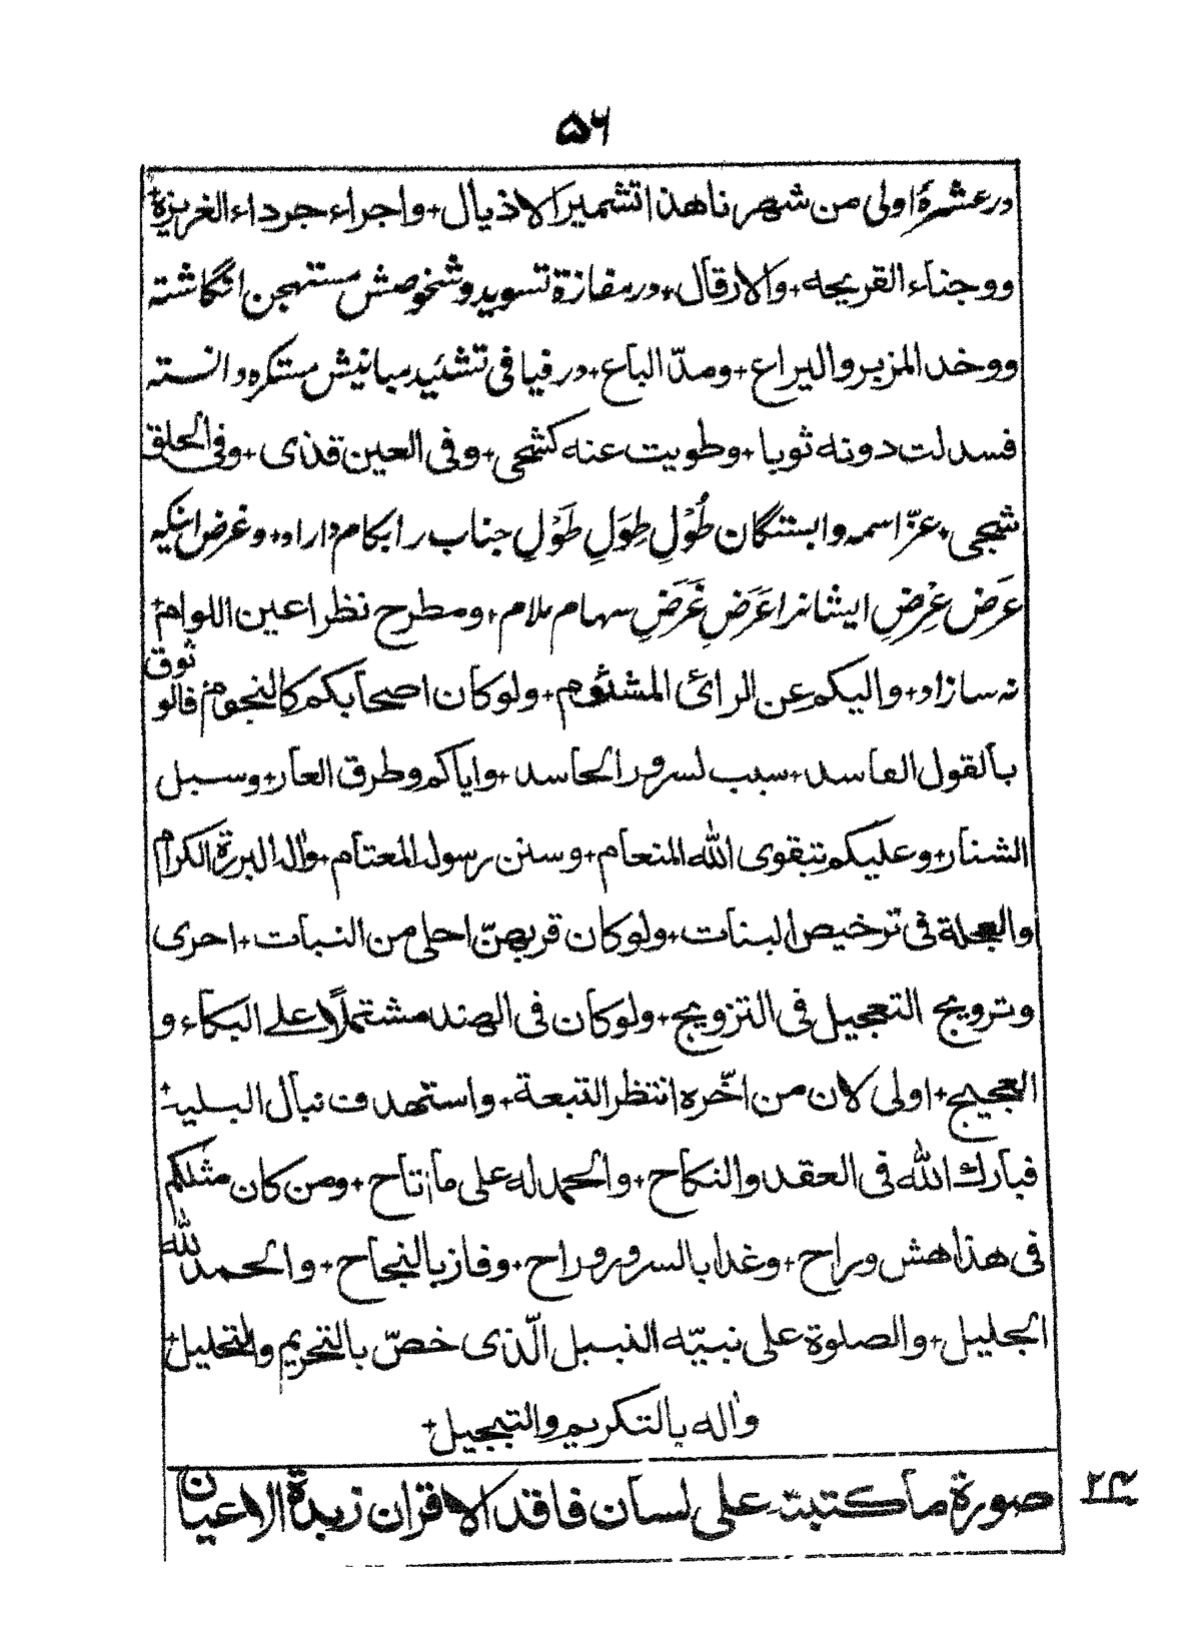 ۵۶
در عشرهٔ اولی من شهرنا هذا تشمیرا لاذیال + واجراء جرداء الغریزة +
ووجناء القریحه + والارقال + در مفازة تسوید و شخوصش مستهجن انگاشته
ووخد المزبر والیراع + ومدّ الباع + در فیافی تشئید مبانیش مستکره دانسته
فسدلت دونه ثوبا + وطویت عنه کشحی + وفی العین قذی + وفی الحلق
شجی + عزّ اسمه وابستگان طُوْلِ طِوَلِ طَوْلِ جناب را بکام داراد + وغرض اینکه
عَرَض عِرْضِ ایشانرا عَرَضِ غَرَضِ سهام ملام + ومطرح نظر اعین اللوام +
نه سازاد + والیکم عن الرائی المشئوم + ولو کان اصحابکم کالنجوم + فالوثوق
بالقول الفاسد + سبب لسرور الحاسد + وایاکم وطرق العار + وسبل
الشنار + وعلیکم بتقوی الله المنعام + وسنن رسوله المعتام + واٰله البررة الکرام
والعجلة فی ترخیص البنات + ولو کان قربهنّ احلی من النبات + احری
وترویج التعجیل فی التزویج + ولو کان فی الهند مشتملًا علی البکاء و
العجیج + اولی لان من اخّره انتظر التبعة + واستهدف نبال البلیة +
فبارك الله فی العقد والنکاح + والحمد له علی ما اتاح + ومن کان مثلکم
فی هذا هش وراح + وغدا بالسرور وراح + وفاز بالنجاح + والحمد لله
الجلیل + والصلوة علی نبیّه النبیل الّذی خصّ بالتحریم والتحلیل +
واٰله بالتکریم والتبجیل +
صورة ما کتبته علی لسان فاقد الاقران زبدة الاعیان